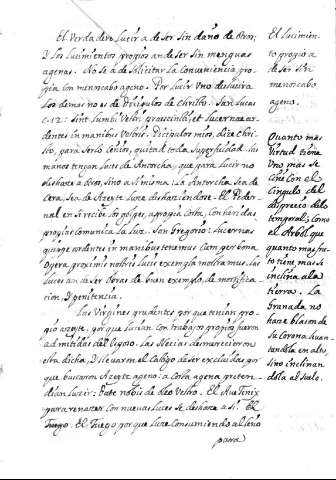 El Verdadero Lucir a de ser sin daño de otros;
Y los lucimientos propios an de ser sin menguas
agenas. No se a de solicitar la conveniencia pro-
pia con menoscabo ageno. Por lucir uno desluzca
los demas no es de Dicipulos de Christo. San Lucas
c. 12: Sint lumbi Vestri præscincti, et lucernæ ar-
dentes in manibus Vestris. Dicipulos mios, dize Chris-
to, para serlo ceñios, quitad toda superfluidad. Las
manos tengan luces de Antorcha, que para lucir no
deshaze a otros, sino a si misma: La Antorcha, sea de
Cera, sea de Azeyte luze deshaziendose. El Peder-
nal en si recibe los golpes, a propia costa, con heridas
propias comunica la luz. San Gregorio: Lucernas
quippe ardentes in manibus tenemus cum per bona
Opera proximis nostris lucis exempla monstramus. Las
luces an de ser obras de buen exemplo, de mortifica-
cion, y penitencia.
Las Virgines prudentes por que tenian pro-
pio azeyte, por que lucian con trabajo propio fueron
admitidas del Esposo. Las Necias desmerecieron
esta dicha, y llevaron el castigo de ser excluidas por
que buscaron Azeyte ageno: a costa agena preten-
dian luzir: Date nobis de oleo Vestro. El Ave Fenix
para renacer con nuevas luces se deshaze a si. El
Fuego. El Fuego por que luze consumiendo al leño
para
El lucimien-
to propio a
de ser sin
menoscabo
ageno.
Quanto mas
Virtud tiene
Uno mas se
Ciñe con el
Cingulo del
desprecio de lo
temporal; como
el Arbol que
quanto mas fru-
to tiene mas se
inclina a la
tierra. La
Granada no
haze blason de
su Corona levan-
tandola en alto,
sino inclinan
dola al suelo.